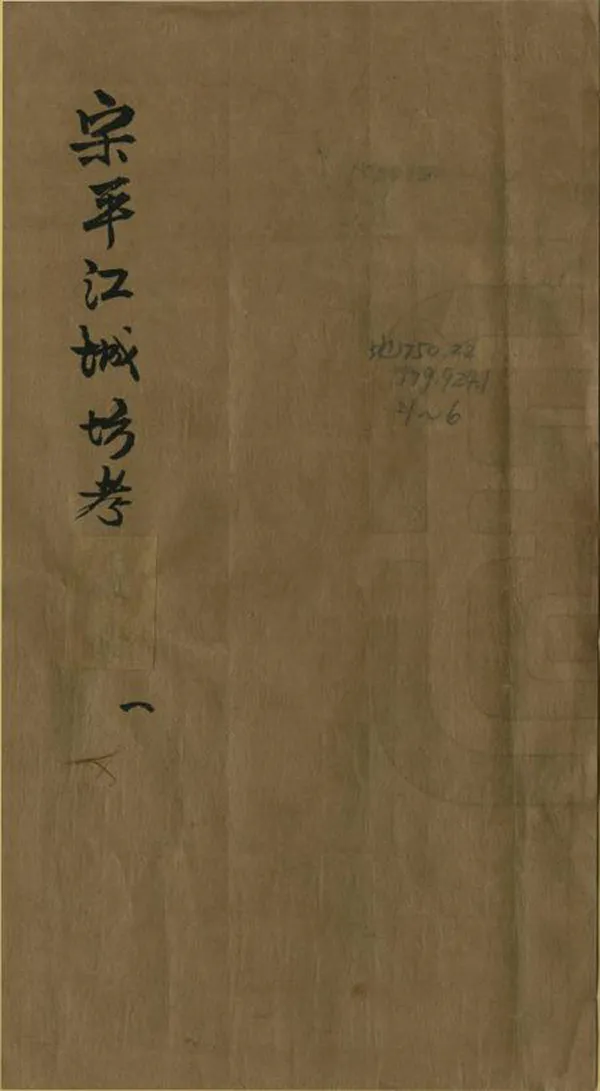 宋平江城坊考
一
地250.22
179.9291
4~6